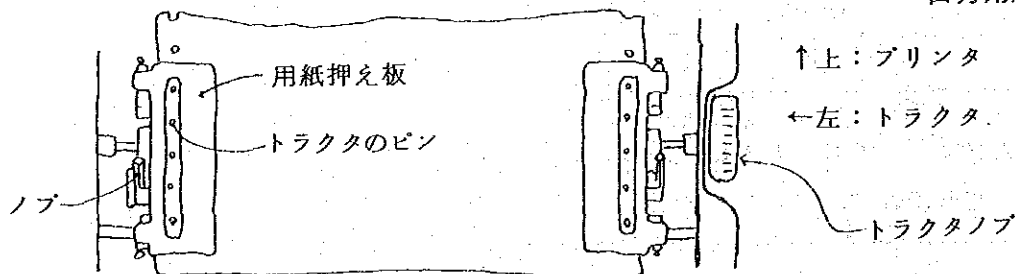 用紙押え板
トラクタのピン
ノブ
↑上：プリンタ
←左：トラクタ
トラクタノブ